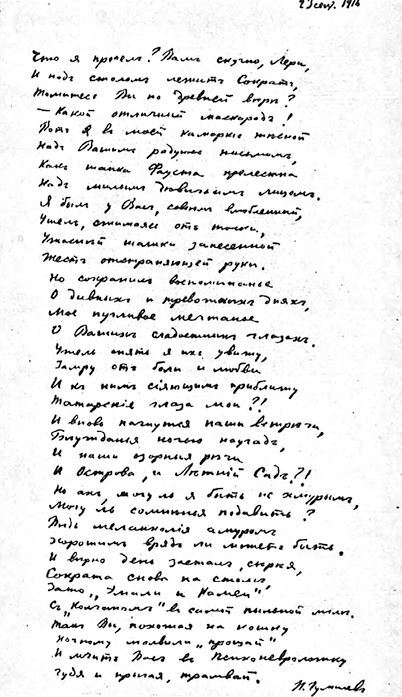 23 сент. 1916
Что я прочелъ? Вамъ скучно, Лери,
И подъ столомъ лежитъ Сократъ,
Томитесь Вы по древней вѣрѣ?
— Какой отличный маскарадъ!
Вотъ я въ моей каморкѣ тѣсной
Надъ Вашимъ радуюсь письмомъ,
Какъ шапка Фауста прелестна
Надъ милымъ дѣвичьимъ лицомъ.
Я былъ у Васъ, совсѣмъ влюбленный,
Ушелъ, сжимаясь отъ тоски,
Ужасной шашки занесенной
Жестъ отстраняющей руки.
Но сохранилъ воспоминанье
О дивныхъ и тревожныхъ дняхъ,
Мое пугливое мечтанье
О Вашихъ сладостныхъ глазахъ.
Ужель опять я ихъ увижу,
Замру отъ боли и любви
И къ нимъ сіяющимъ приближу
Татарскіе глаза мои?!
И вновь начнутся наши встрѣчи,
Блужданья ночью наугадъ,
И наши озорныя рѣчи
И Острова, и Лѣтній Садъ?!
Но ахъ, могу ль я быть не хмурымъ,
Могу ль сомнѣнья подавить?
Вѣдь меланхолія амуромъ
Хорошимъ врядъ ли можетъ быть.
И вѣрно день засталъ, сѣрѣя,
Сократа снова на столѣ,
Зато „Эмали и Камеи“
Съ „Колчаномъ“ въ самой пыльной мглѣ.
Такъ Вы, похожая на кошку
Ночному молвили „прощай“
И мчитъ Васъ въ Психоневроложку
Гудя и прыгая, трамвай.
Н. Гумилевъ